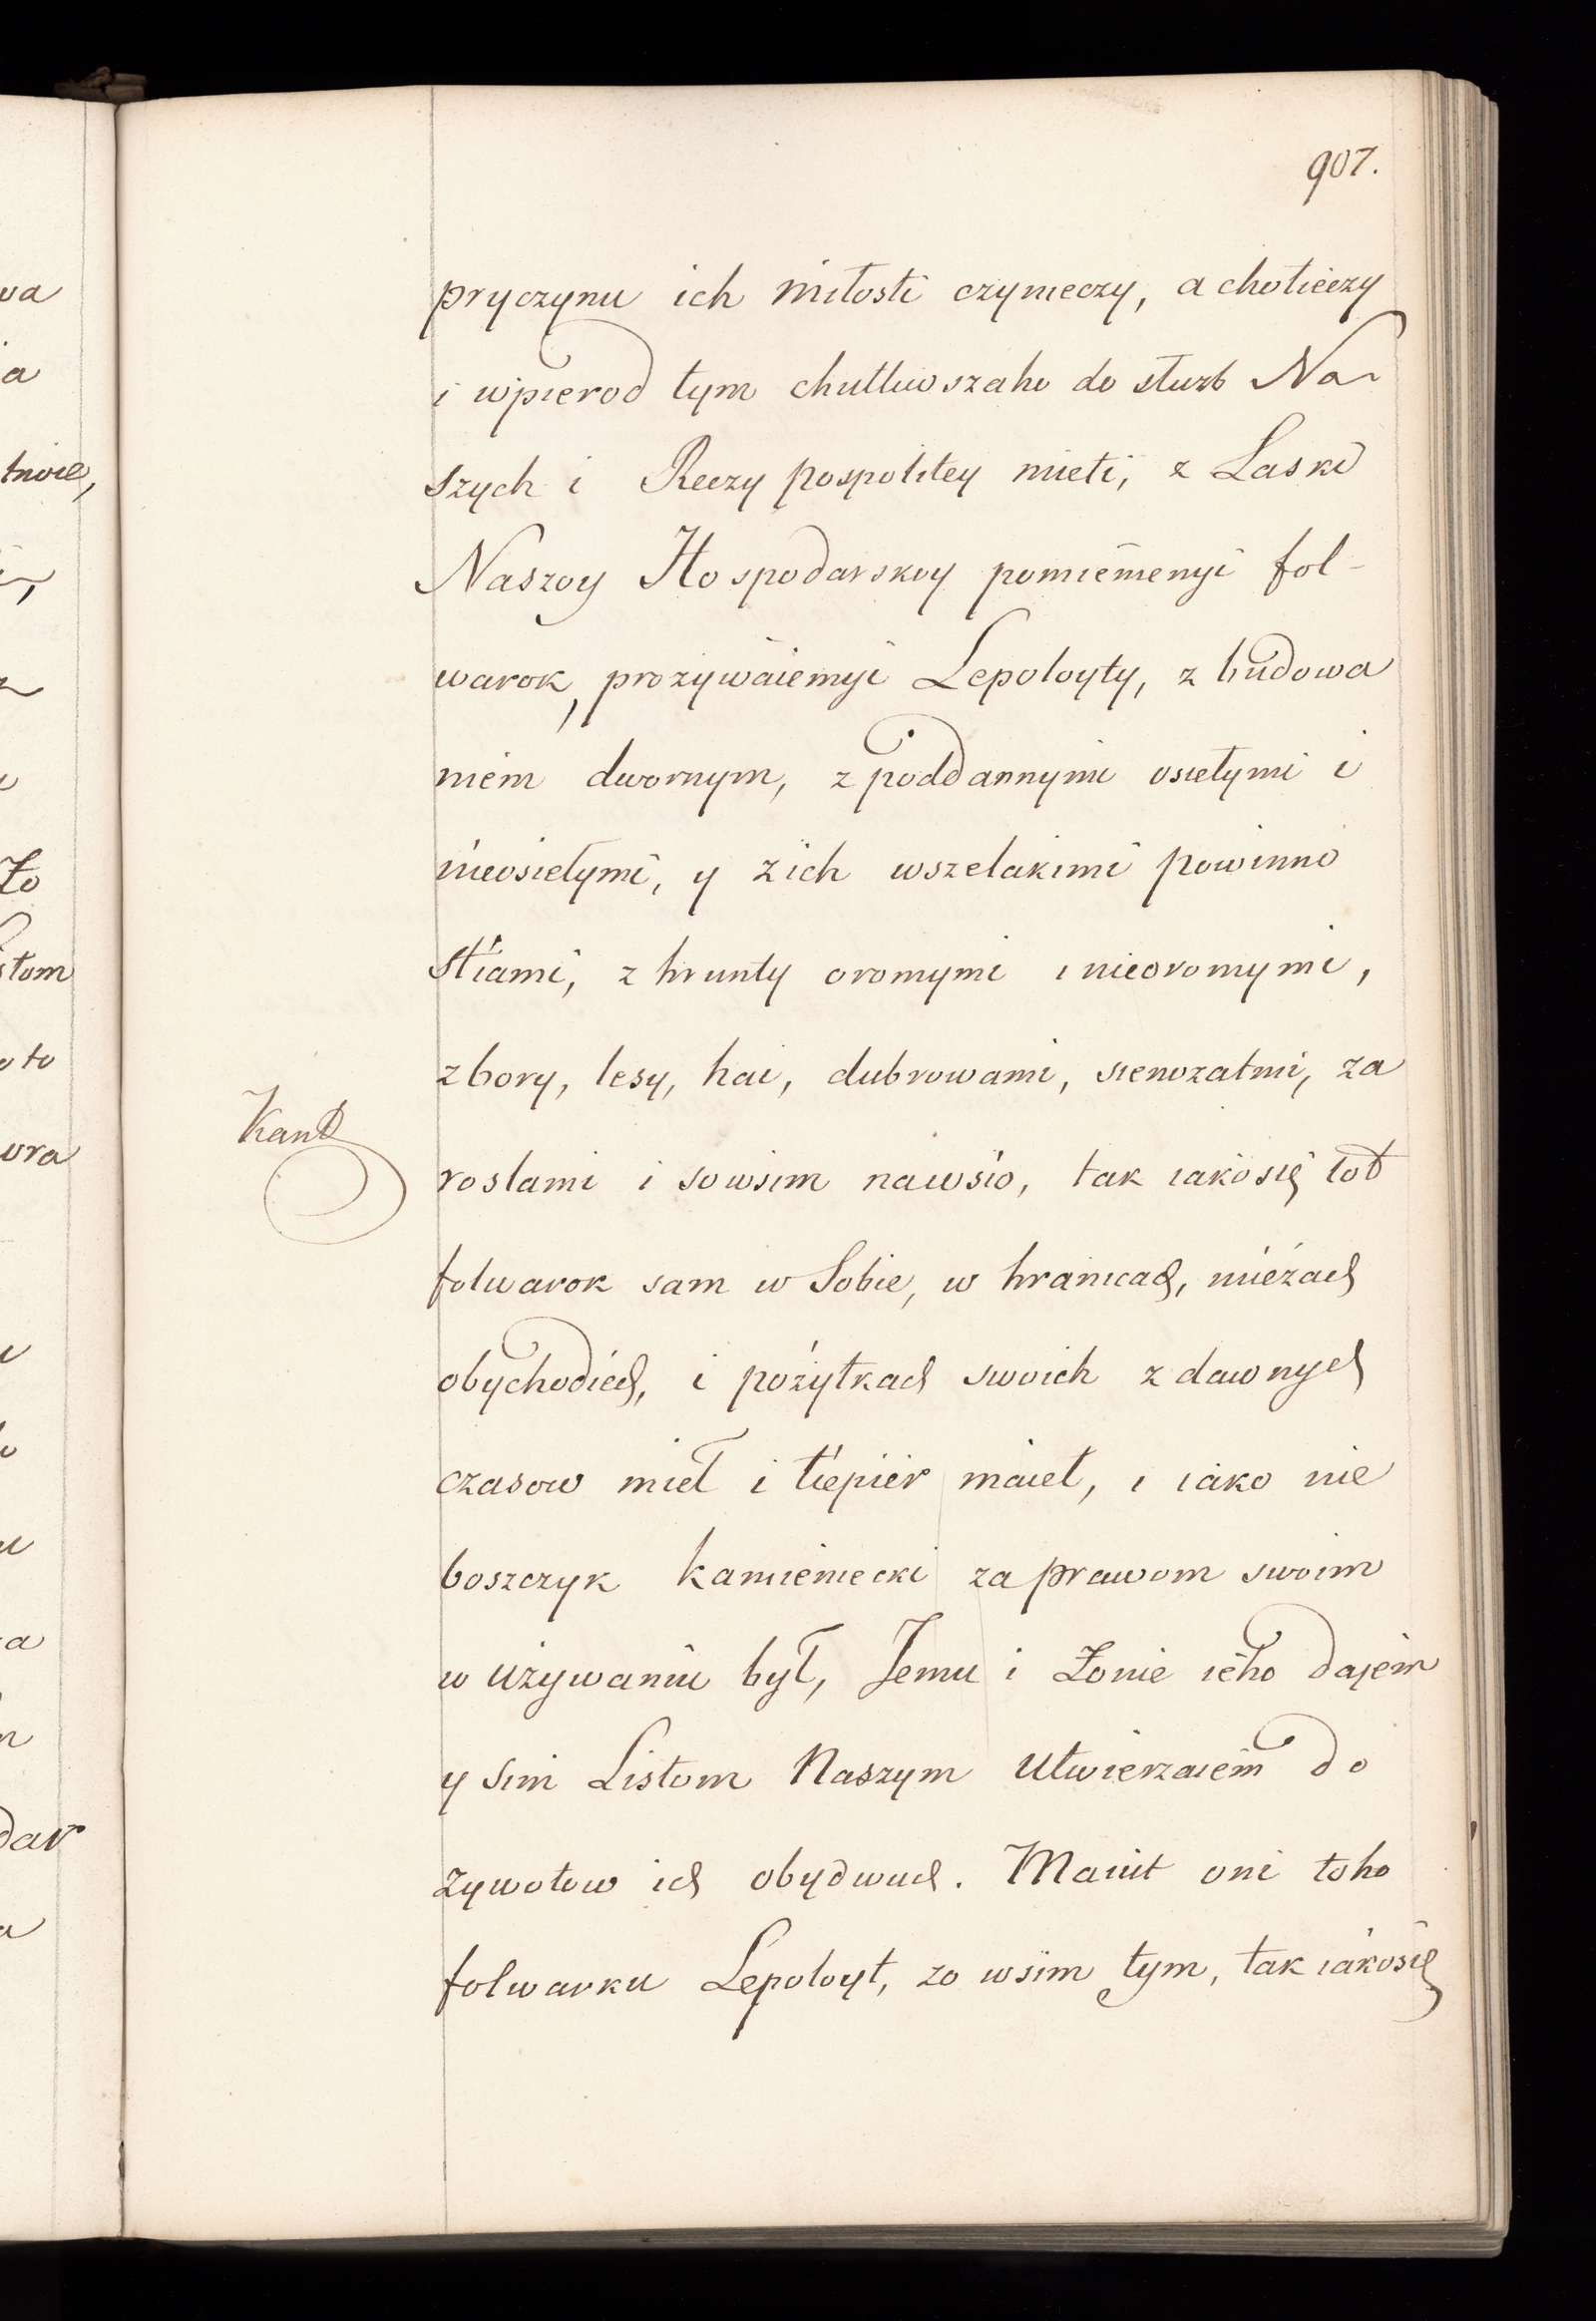 907.
pryczynu ich miłosti czyneczy, a chotieczy
i wpierod tym chutliwszaho do słuzb Na-
szych i Reczy pospolitey mieti, z Laski
Naszoy Hospodarskoy pomiemenyi fol-
warok, prozywaiemyi Lepoloyty, z budowa
niem dwornym, z poddannymi osiełymi i
nieosiełymi, y z ich wszelakimi powinno
stiami, z hrunty oromymi i nieoromymi,
z bory, lesy, hai, dubrowami, sienozatmi, za
roslami i so wsim na wsio, tak iako się tot
Kant
folwarok sam w Sobie, w hranicach, mieżach
obychodiech, i pożytkach swoich z dawnych
czasow mieł i tiepier maiet, i iako nie
boszczyk Kamieniecki za prawom swoim
w używaniu był, Jemu i Żonie ieho dajem
y sim Listom Naszym Utwierzaiem do
zywotow ich obydwuch. Maiut oni toho
folwarku Lepoloyt, zo wsim tym, tak iako się
wa
ia
tnoie,
Żo
stom
oto
ora
dar